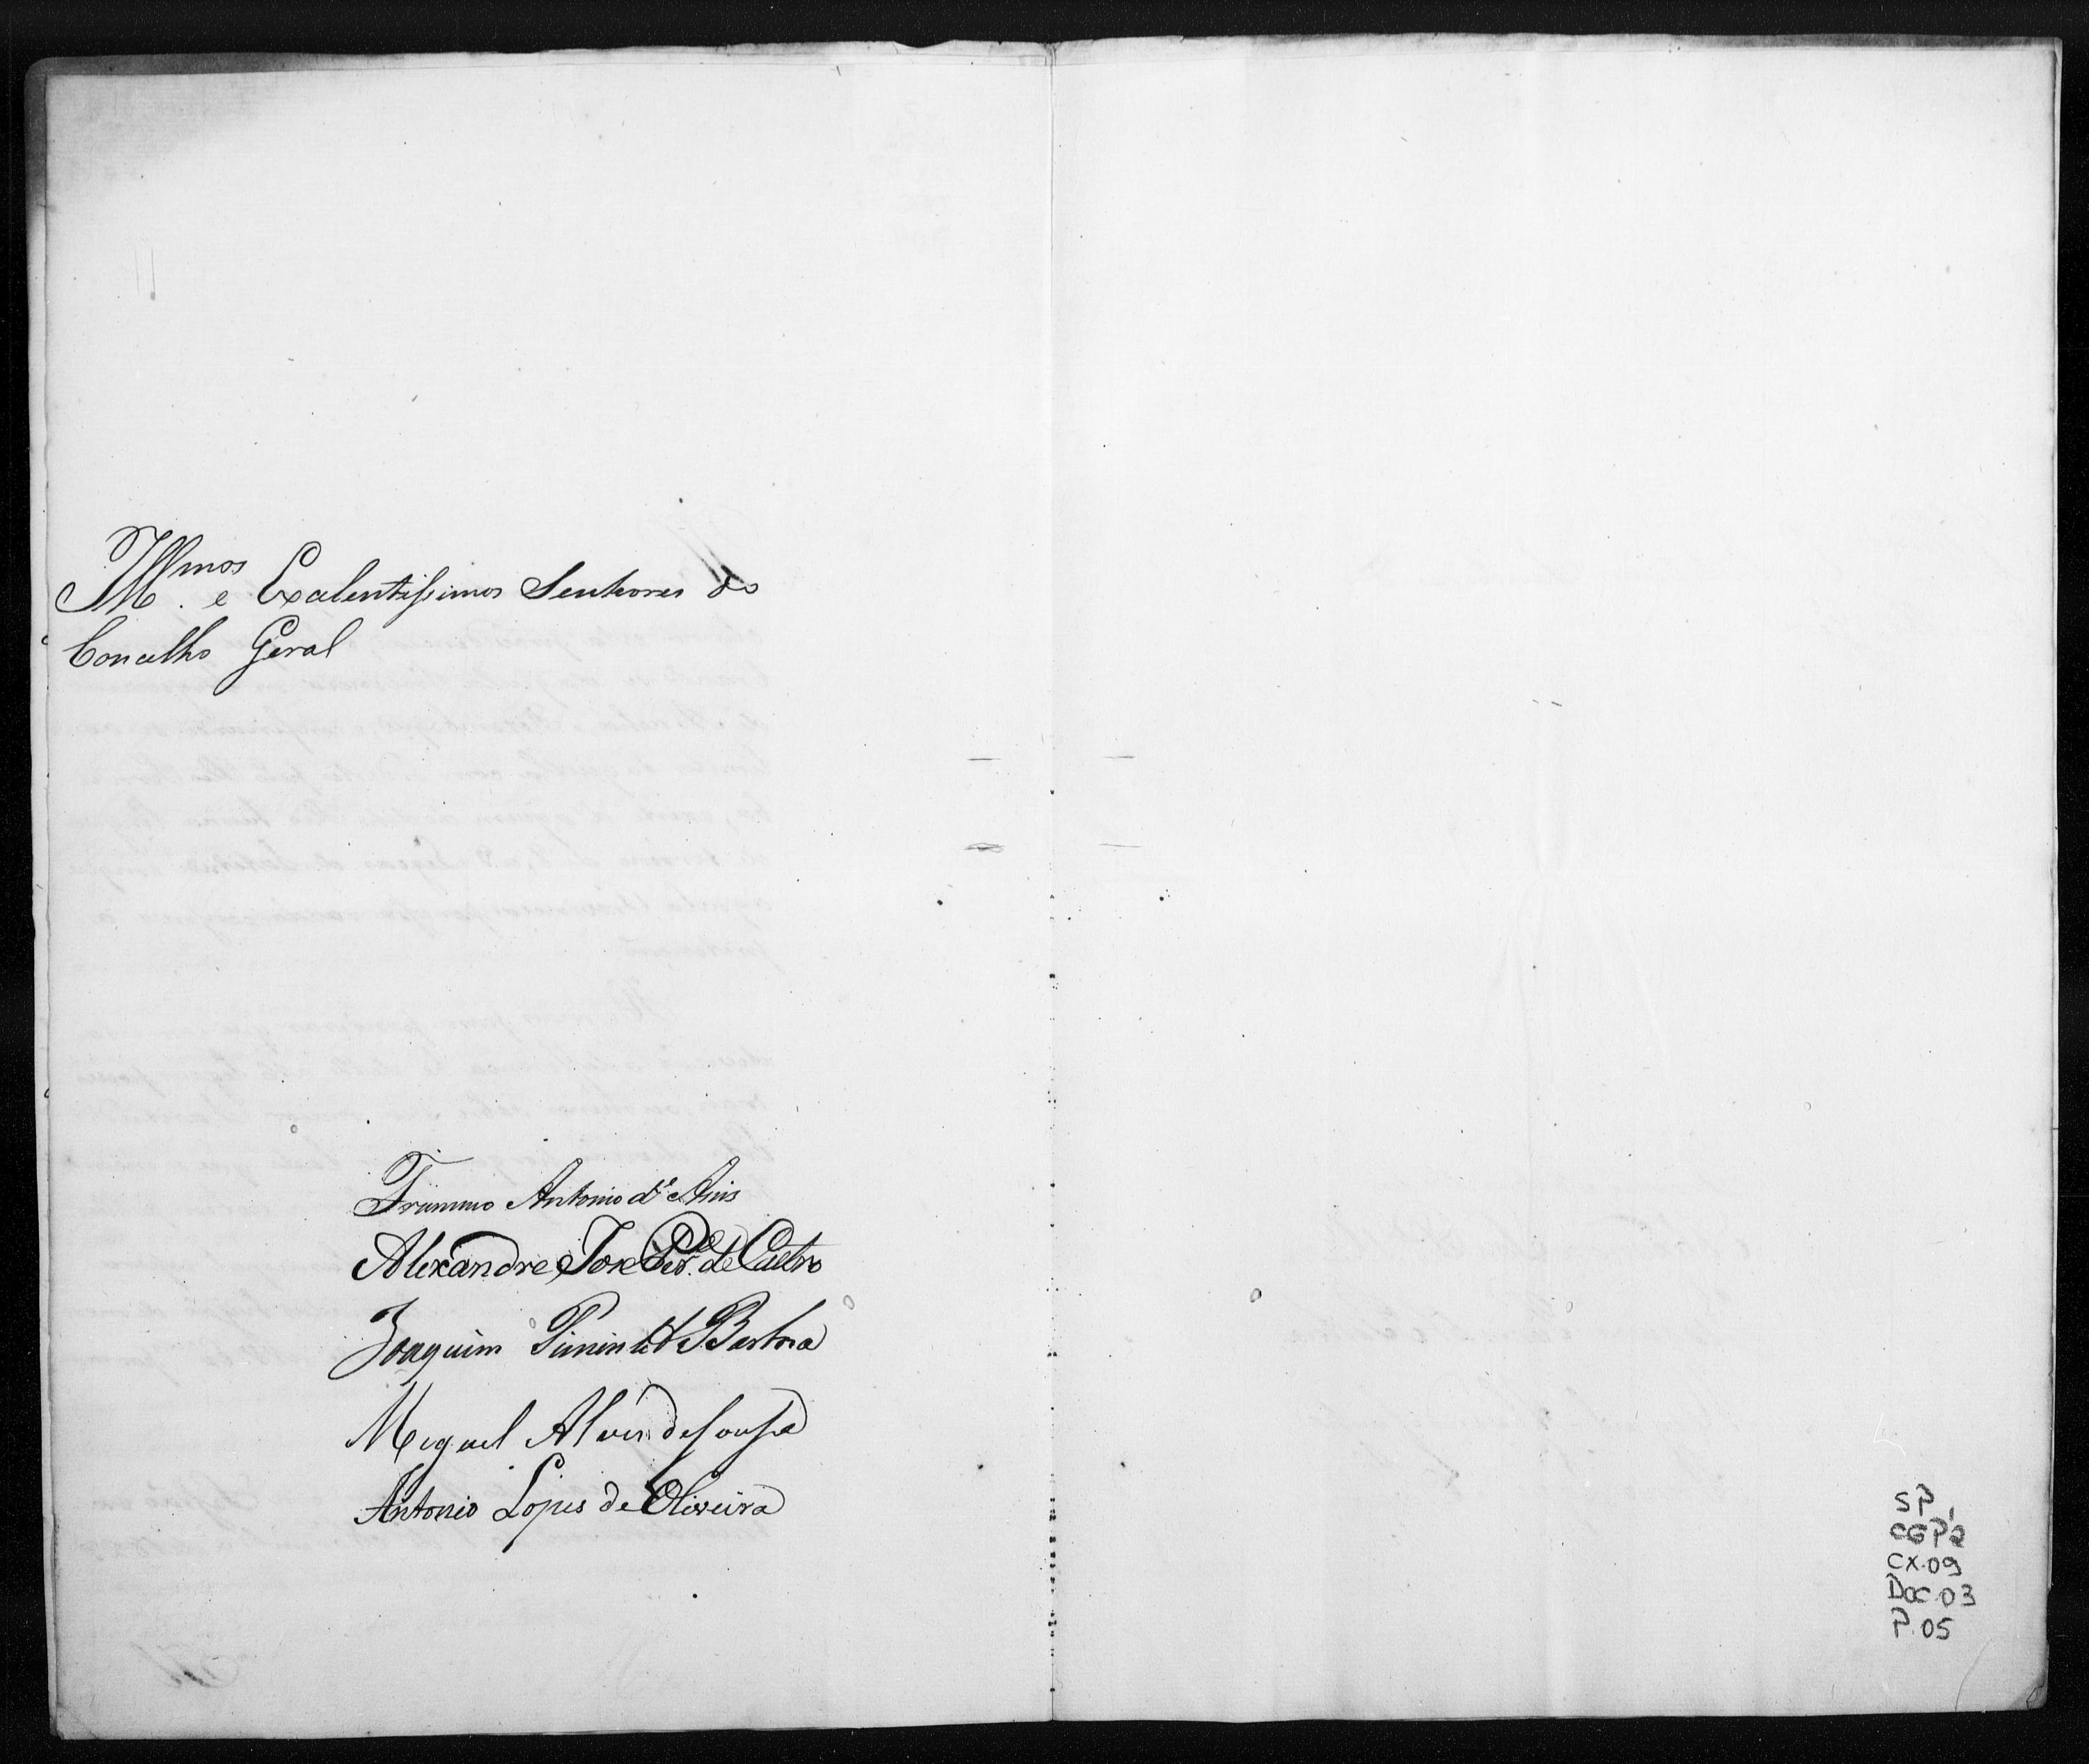 Illmos. e Excelentissimos Senhores do
Concelho Geral
Antonio d'
Alexandre Jose Per.ª de Castro
Joaquim Pimintel Barboza
Miguel Alves de Sousa
Antonio Lopes de Oliveira
SP
CGP2
CX.09
DOC.03
P.05